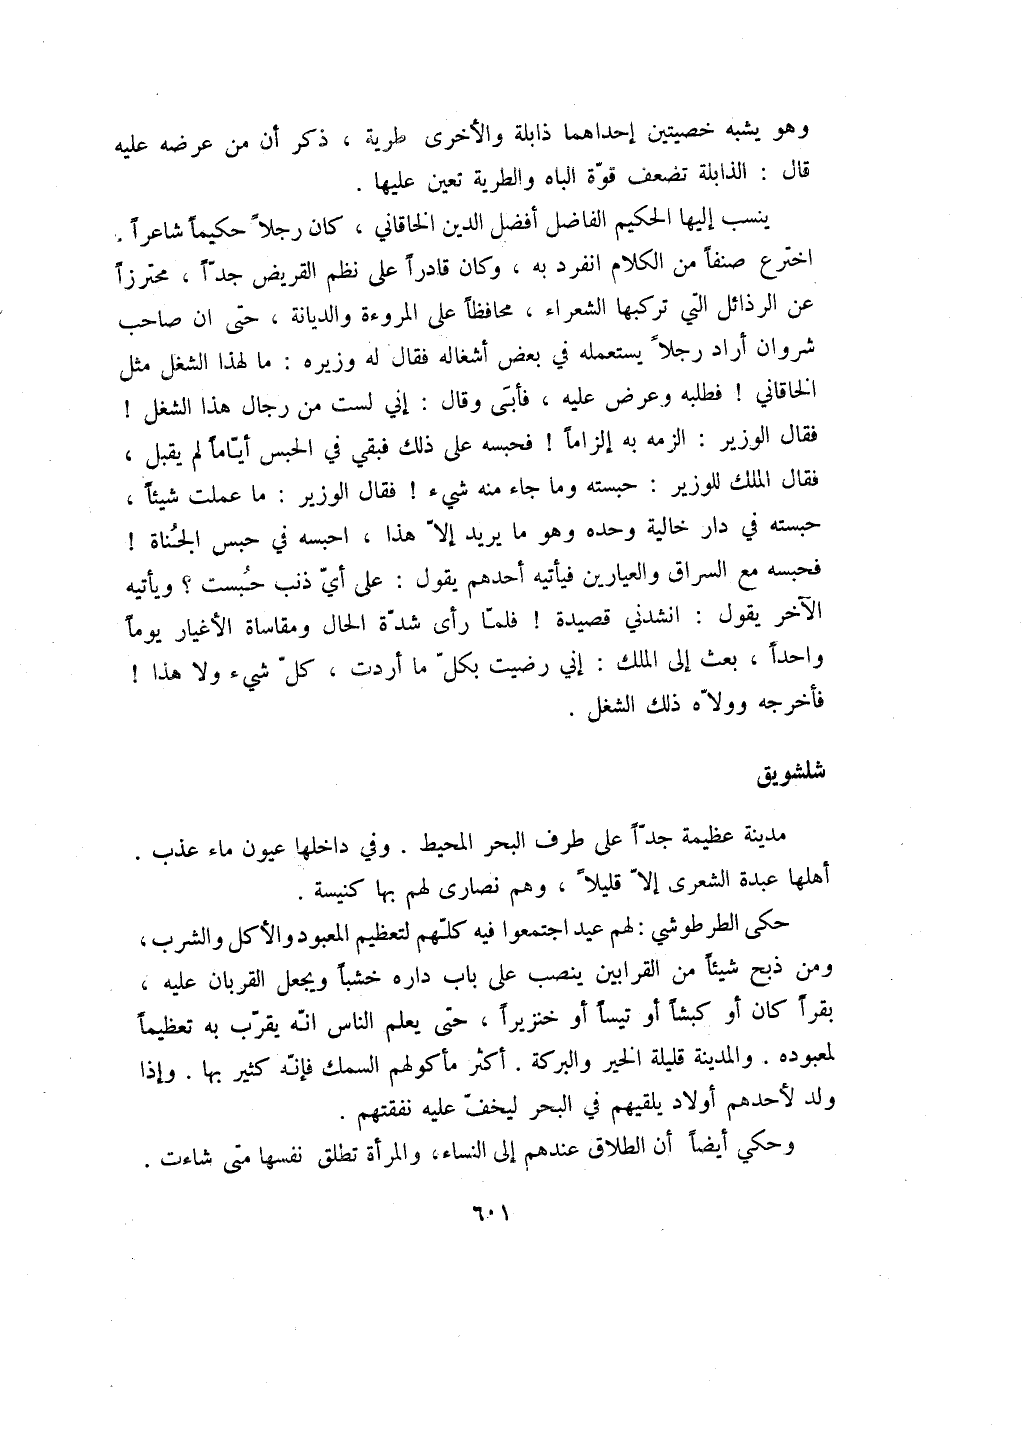 وهو يشبه خصيتين إحداهما ذابلة والأخرى طرية ، ذكر أن من عرضه عليه
قال : الذابلة تضعف قوّة الباه والطرية تعين عليها .
ينسب إليها الحكيم الفاضل أفضل الدين الخاقاني ، كان رجلاً حكيماً شاعراً .
اخترع صنفاً من الكلام انفرد به ، وكان قادراً على نظم القريض جدّاً ، محترزاً
عن الرذائل التي تركبها الشعراء ، محافظاً على المروءة والديانة ، حتى ان صاحب
شروان أراد رجلاً يستعمله في بعض أشغاله فقال له وزيره : ما لهذا الشغل مثل
الخاقاني ! فطلبه وعرض عليه ، فأبَى وقال : إني لست من رجال هذا الشغل !
فقال الوزير : الزمه به إلزاماً ! فحبسه على ذلك فبقي في الحبس أيّاماً لم يقبل ،
فقال الملك للوزير : حبسته وما جاء منه شيء ! فقال الوزير : ما عملت شيئاً ،
حبسته في دار خالية وحده وهو ما يريد إلاّ هذا ، احبسه في حبس الجُناة !
فحبسه مع السراق والعيارين فيأتيه أحدهم يقول : على أيّ ذنب حُبست ؟ ويأتيه
الآخر يقول : انشدني قصيدة ! فلمّا رأى شدّة الحال ومقاساة الأغيار يوماً
واحداً ، بعث إلى الملك : إني رضيت بكلّ ما أردت ، كلّ شيء ولا هذا !
فأخرجه وولاّه ذلك الشغل .
شلشويق
مدينة عظيمة جدّاً على طرف البحر المحيط . وفي داخلها عيون ماء عذب .
أهلها عبدة الشعرى إلاّ قليلاً ، وهم نصارى لهم بها كنيسة .
حكى الطرطوشي : لهم عيد اجتمعوا فيه كلّهم لتعظيم المعبود والأكل والشرب ،
ومن ذبح شيئاً من القرابين ينصب على باب داره خشباً ويجعل القربان عليه ،
بقراً كان أو كبشاً أو تيساً أو خنزيراً ، حتى يعلم الناس انّه يقرّب به تعظيماً
لمعبوده . والمدينة قليلة الخير والبركة . أكثر مأكولهم السمك فإنّه كثير بها . وإذا
ولد لأحدهم أولاد يلقيهم في البحر ليخفّ عليه نفقتهم .
وحكي أيضاً أن الطلاق عندهم إلى النساء ، والمرأة تطلق نفسها متى شاءت .
٦٠١